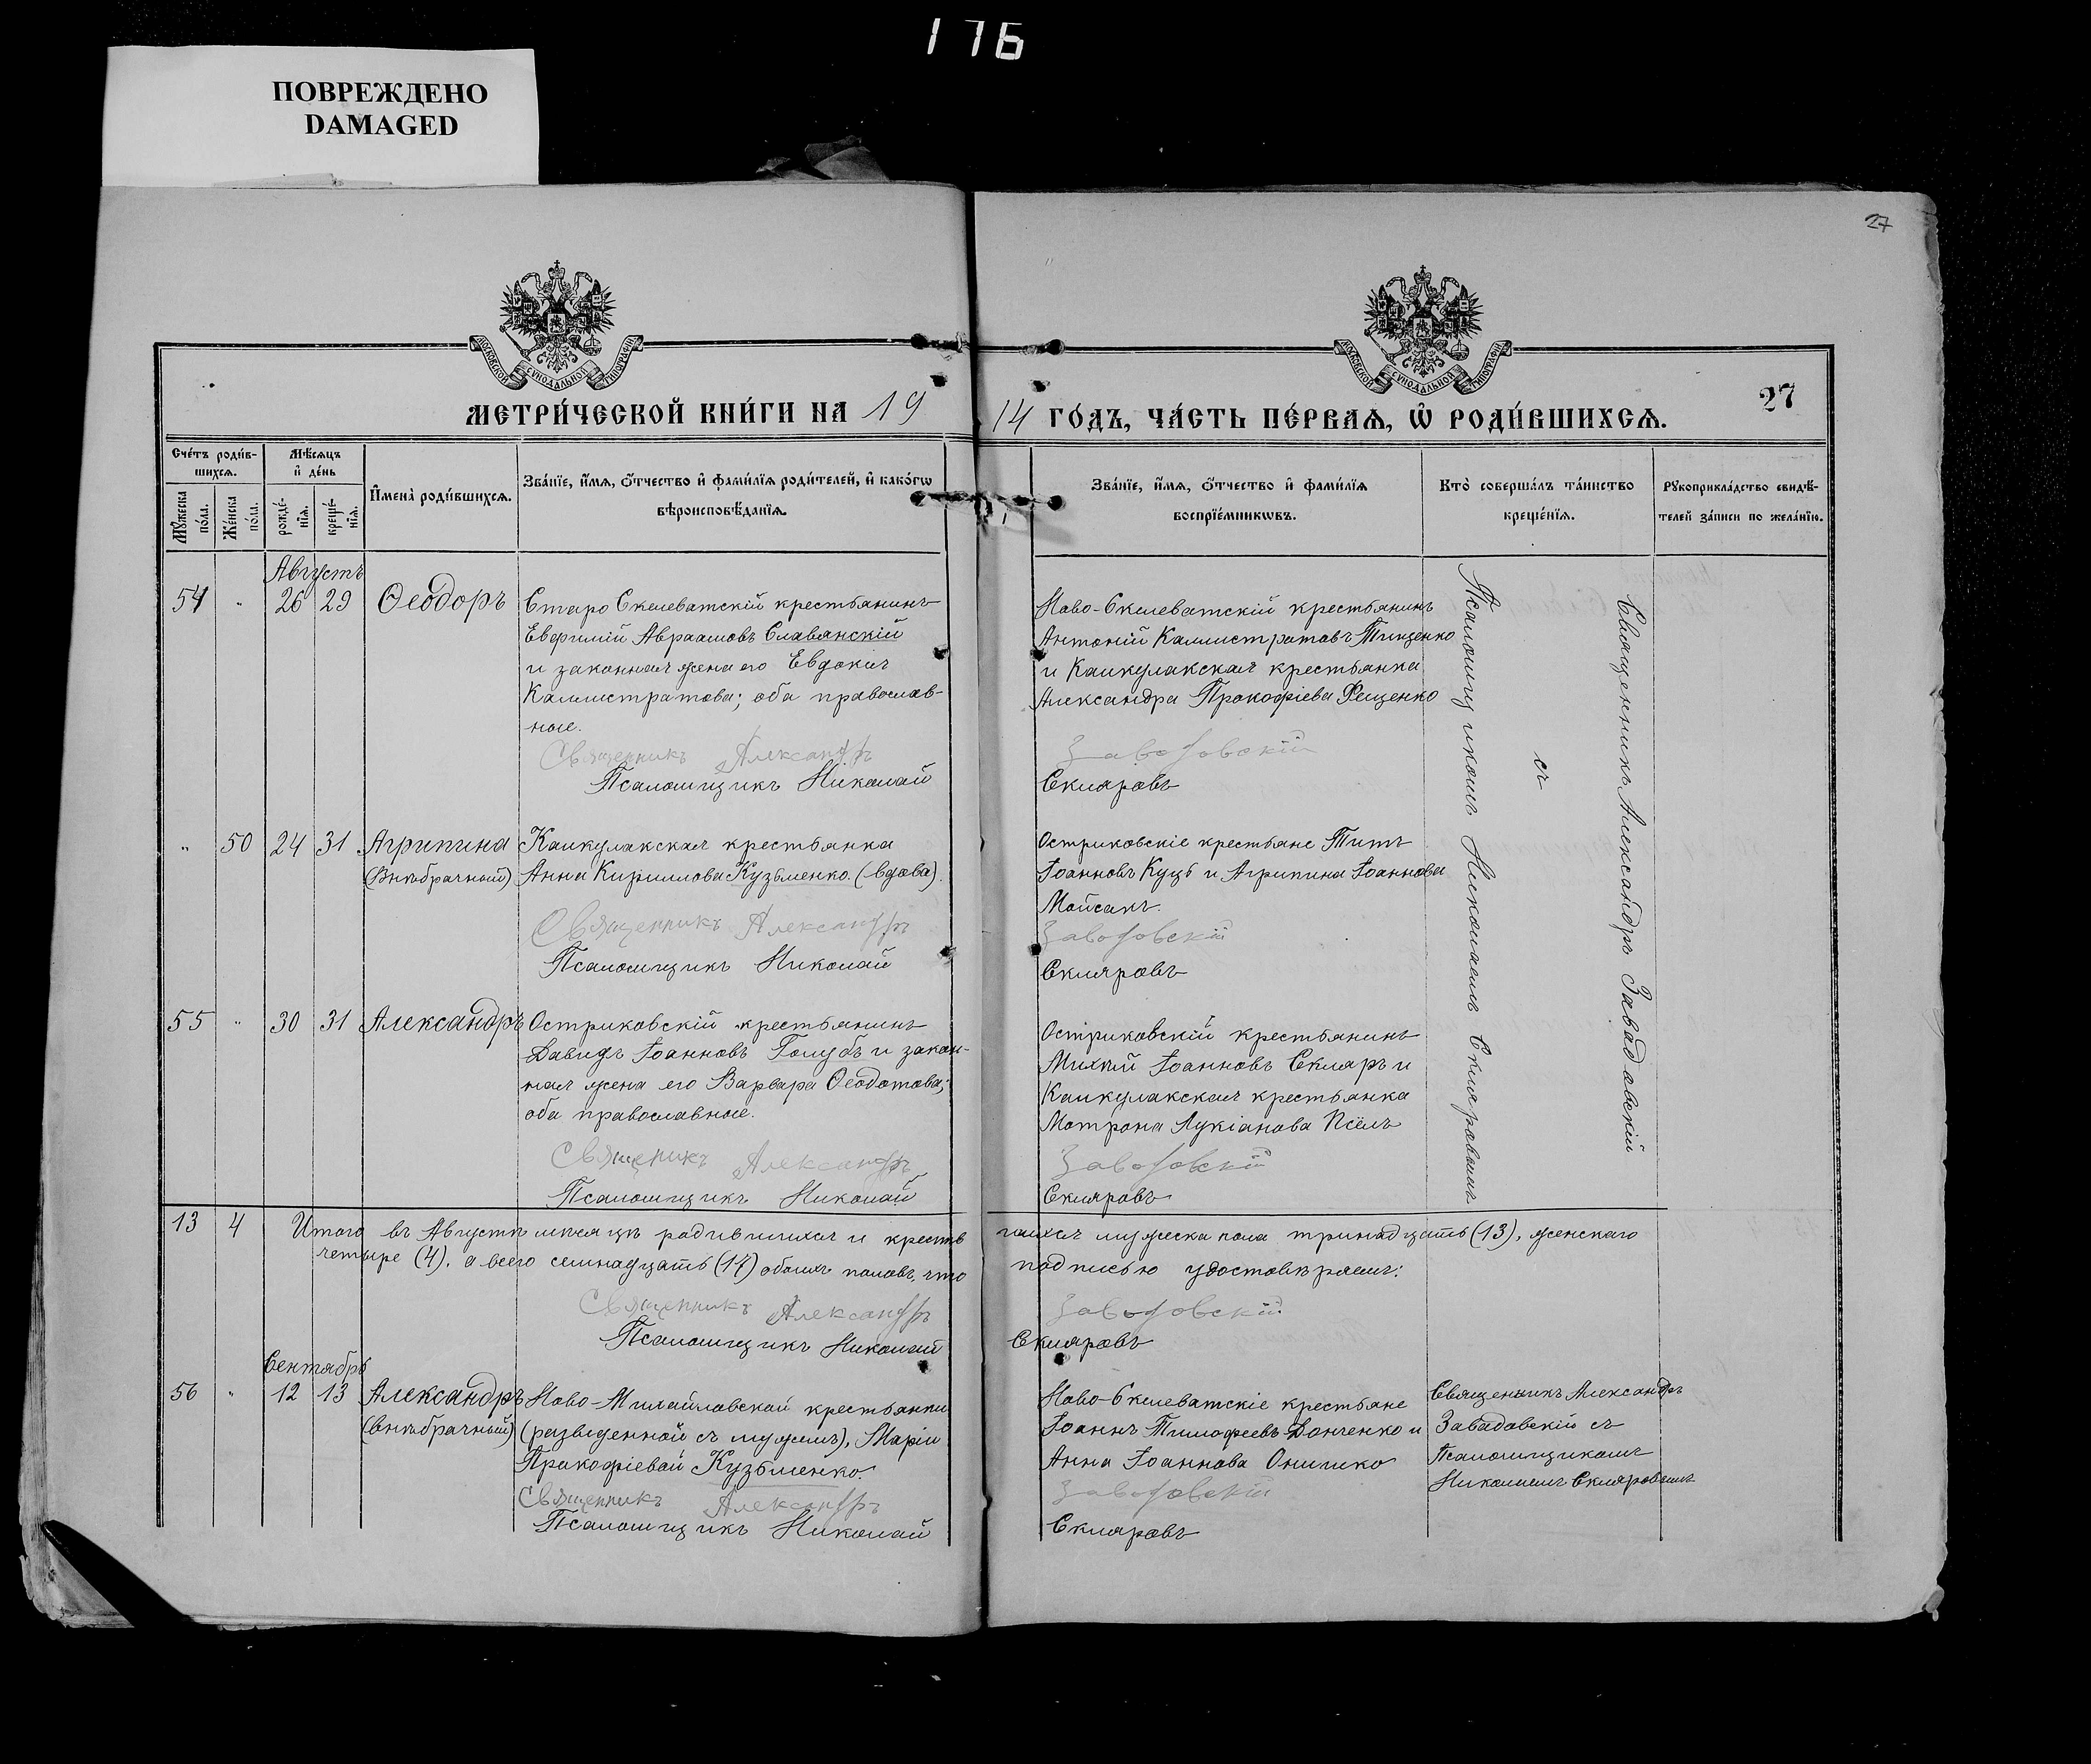 176
ПОВРЕЖДЕНО
DAMAGED
27
МОСКОВСКОЙ СѴНОДАЛЬНОЙ ТИПОГРАФІИ
МОСКОВСКОЙ СѴНОДАЛЬНОЙ ТИПОГРАФІИ
МЕТРИ́ЧЕСКОЙ КНИ́ГИ НА 1914 ГО́ДЪ, ЧА́СТЬ ПЕ́РВАѦ, Ѡ҆ РОДИ́ВШИХСѦ.
27
Сче́тъ роди́в-
шихсѧ.
Мꙋ́жеска
по́ла.
Же́нска
по́ла.
Мѣ́сѧцъ
и҆ де́нь
рожде́-
нїѧ.
креще́-
нїѧ.
И҆мена̀ роди́вшихсѧ.
Зва́нїе, и҆́мѧ, ѻ҆́тчество и҆ фами́лїѧ роди́телей, и҆ како́гѡ
вѣроисповѣ́данїѧ.
Зва́нїе, и҆́мѧ, ѻ҆́тчество и҆ фами́лїѧ
воспрїе́мникѡвъ.
Кто̀ соверша́лъ та́инство
креще́нїѧ.
Рꙋкоприкла́дство свидѣ́-
телей за́писи по жела́нїю.
Августъ
54 " 26 29 Ѳеодоръ
Старо Скелеватскій крестьянинъ
Евфимій Авраамовъ Славянскій
и законная жена его Евдокія
Каллистратова; оба православ-
ные.
Священникъ Александръ
Псаломщикъ Николай
Ново-Скелеватскій крестьянинъ
Антоній Каллистратовъ Тищенко
и Канкулакская крестьянка
Александра Прокофіева Фещенко
Завадовскій
Скляровъ
Священникъ Александръ Завадовскій
съ
Псаломщикомъ Николаемъ Скляровымъ
" 50 24 31 Агрипина
(Внѣбрачный)
Канкулакская крестьянка
Анна Кириллова Кузьменко. (вдова).
Священникъ Александръ
Псаломщикъ Николай
Остриковскіе крестьяне Титъ
Іоанновъ Куцъ и Агрипина Іоаннова
Мойсакъ.
Завадовскій
Скляровъ
55 " 30 31 Александръ
Остриковскій крестьянинъ
Давидъ Іоанновъ Голубъ и закон-
ная жена его Варвара Ѳеодотова;
оба православные.
Священникъ Александръ
Псаломщикъ Николай
Остриковскій крестьянинъ
Іоанновъ Скляръ и
Канкулакская крестьянка
Мотрона Лукіанова Псёлъ
Завадовскій
Скляровъ
13 4 Итого въ Августѣ мѣсяцѣ родившихся и крестившихся мужеска пола тринадцать (13), женскаго
четыре (4), а всего семнадцать (17) обоихъ половъ, что подписью удостовѣряемъ:
Священникъ Александръ Завадовскій
Псаломщикъ Николай Скляровъ
Сентябрь
56 " 12 13 Александръ
(внѣбрачный)
Ново-Михайловской крестьянки
(разведенной съ мужемъ), Маріи
Прокофіевой Кузьменко.
Священникъ Александръ
Псаломщикъ Николай
Ново-Скелеватскіе крестьяне
Іоаннъ Тимофеевъ Донченко и
Анна Іоаннова Онишко
Завадовскій
Скляровъ
Священникъ Александръ
Завадовскій съ
Псаломщикомъ
Николаемъ Скляровымъ